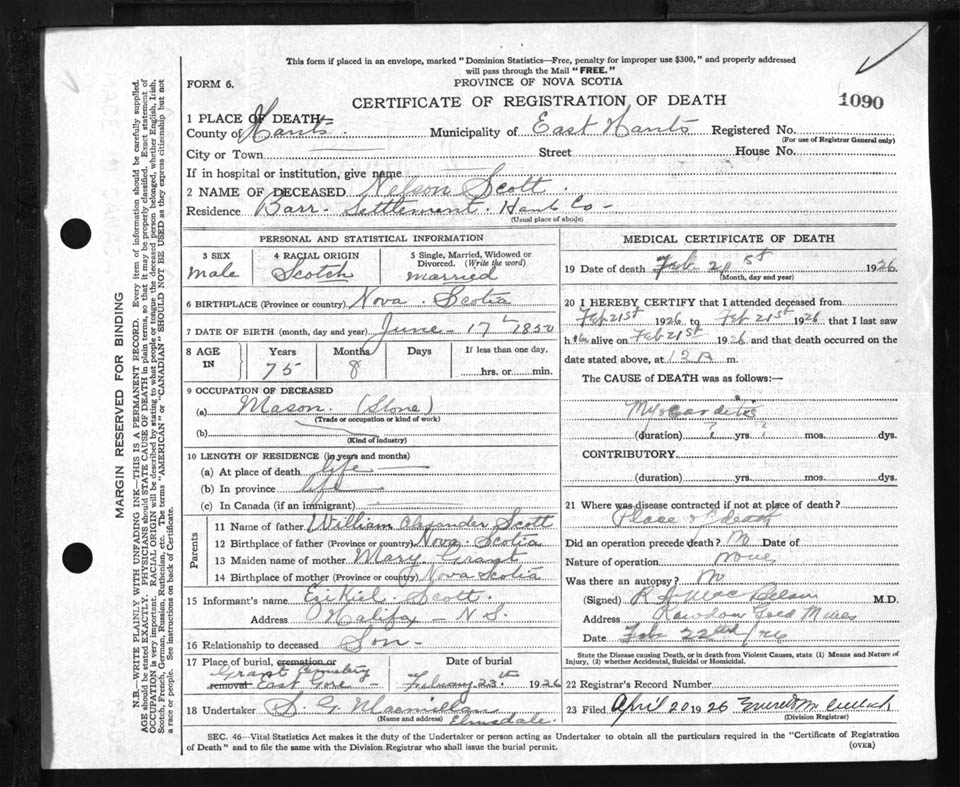 This form if placed in an envelope, marked "Dominion Statistics—Free, penalty for improper use $300," and properly addressed
will pass through the Mail "FREE."
FORM 6.
PROVINCE OF NOVA SCOTIA
CERTIFICATE OF REGISTRATION OF DEATH
1090
1 PLACE OF DEATH—
County of Hants. Municipality of East Hants Registered No.
(For use of Registrar General only)
City or Town Street House No.
If in hospital or institution, give name
2 NAME OF DECEASED Nelson Scott.
Residence Barr. Settlement. Hants Co—
(Usual place of abode)
PERSONAL AND STATISTICAL INFORMATION
3 SEX 4 RACIAL ORIGIN 5 Single, Married, Widowed or
Divorced. (Write the word)
Male Scotch Married
6 BIRTHPLACE (Province or country) Nova. Scotia
7 DATE OF BIRTH (month, day and year) June—17 1850
8 AGE IN Years Months Days If less than one day,
75 8 hrs. or min.
9 OCCUPATION OF DECEASED
(a) Mason. (Stone)
(Trade or occupation or kind of work)
(b)
(Kind of Industry)
10 LENGTH OF RESIDENCE (in years and months)
(a) At place of death life
(b) In province life
(c) In Canada (if an immigrant)
Parents
11 Name of father William Alexander Scott
12 Birthplace of father (Province or country) Nova. Scotia
13 Maiden name of mother Mary. Grant
14 Birthplace of mother (Province or country) Nova Scotia
15 Informant's name Ezikiel. Scott.
Address Halifax—N S.
16 Relationship to deceased Son—
17 Place of burial, cremation or removal Date of burial
Grant Cemetery
East Gore February 1926
18 Undertaker S. G. Macmillan
(Name and address) Elmsdale.
MEDICAL CERTIFICATE OF DEATH
19 Date of death Feb 21st 1926
(Month, day and year)
20 I HEREBY CERTIFY that I attended deceased from
Feb 21st 1926 to Feb 21st 1926 that I last saw
him alive on Feb 21st 1926 and that death occurred on the
date stated above, at 12 m.
The CAUSE of DEATH was as follows:—
Myocarditis
(duration) ? yrs. ? mos. dys.
CONTRIBUTORY
(duration) yrs. mos. dys.
21 Where was disease contracted if not at place of death?
Place of death
Did an operation precede death? No Date of
Nature of operation None
Was there an autopsy? No
(Signed) M.D.
Address Rawdon Gold Mines
Date Feb 22nd/26
State the Disease causing Death, or in death from Violent Causes, state (1) Means and Nature of
Injury, (2) whether Accidental, Suicidal or Homicidal.
22 Registrar's Record Number
23 Filed April 20 1926
(Division Registrar)
SEC. 46—Vital Statistics Act makes it the duty of the Undertaker or person acting as Undertaker to obtain all the particulars required in the "Certificate of Registration
of Death" and to file the same with the Division Registrar who shall issue the burial permit.
(OVER)
MARGIN RESERVED FOR BINDING
N.B.—WRITE PLAINLY WITH UNFADING INK—THIS IS A PERMANENT RECORD. Every item of information should be carefully supplied.
AGE should be stated EXACTLY. PHYSICIANS should STATE CAUSE OF DEATH in plain terms, so that it may be properly classified. Exact statement of
OCCUPATION is very important. RACIAL ORIGIN will be described by stating to what people or tongue the deceased person belonged, whether English, Irish,
Scotch, French, German, Russian, Ruthenian, etc. The terms "AMERICAN" or "CANADIAN" SHOULD NOT BE USED as they express citizenship but not
a race or people. See instructions on back of Certificate.